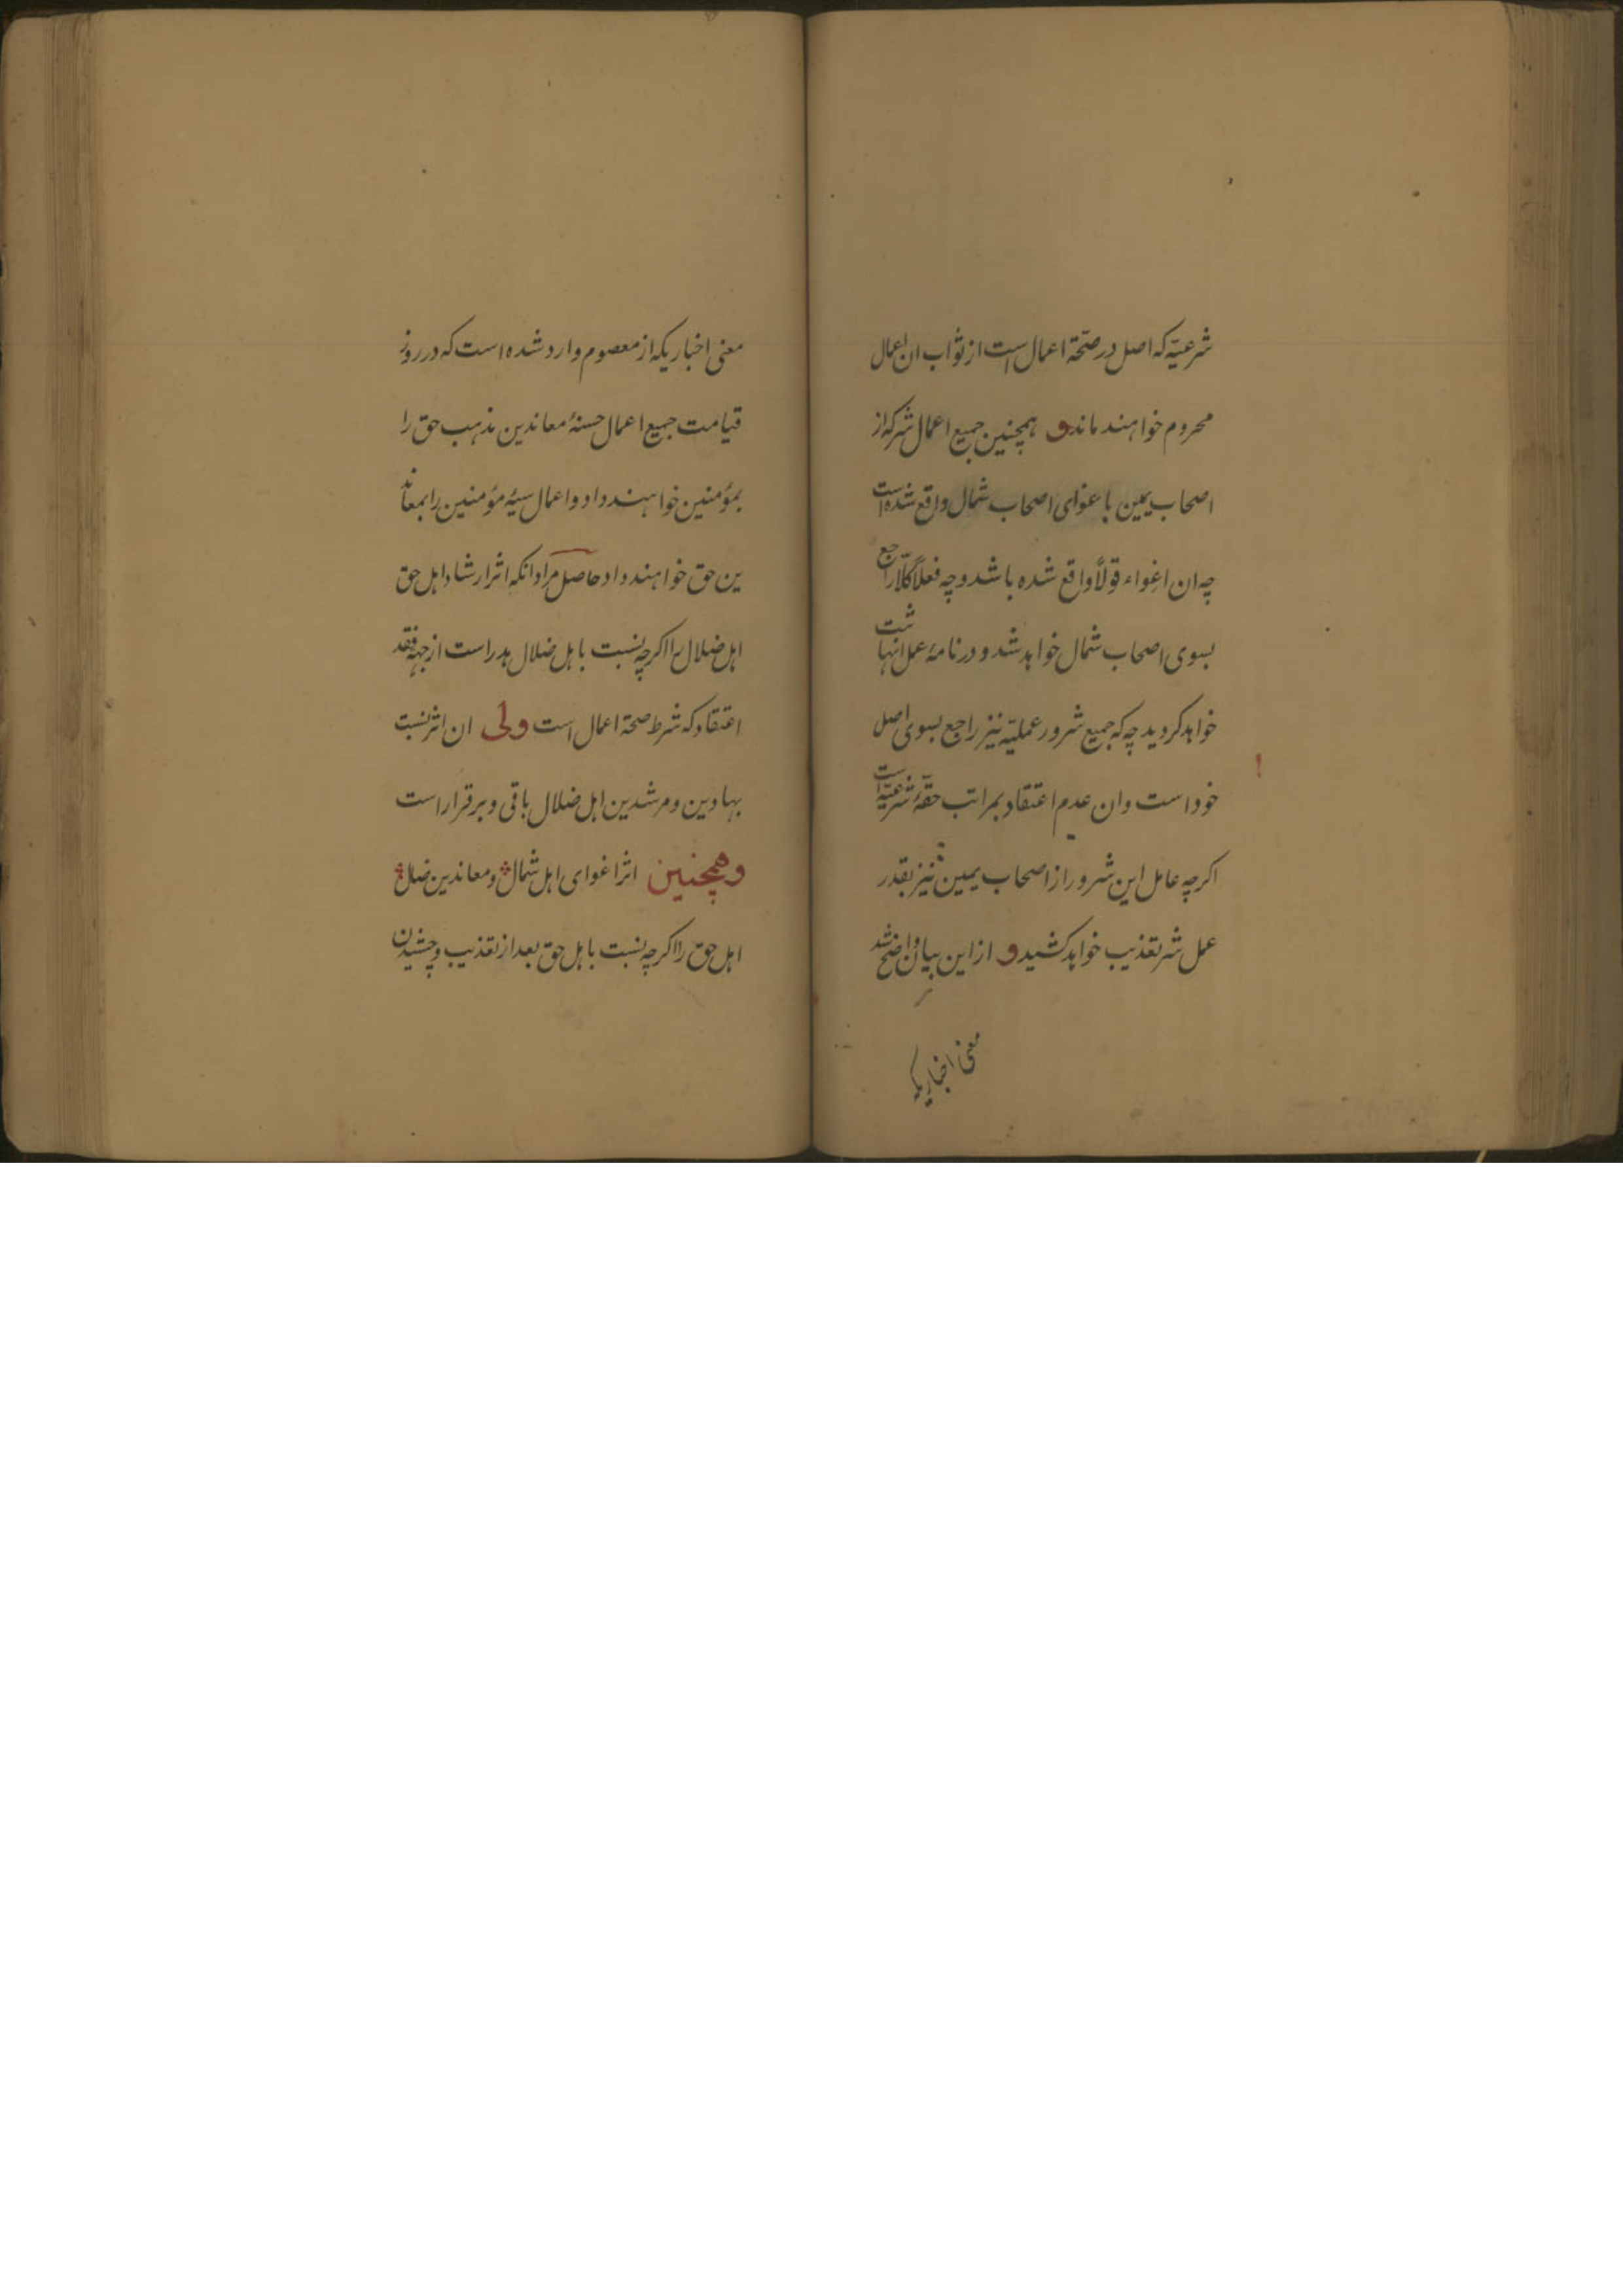 شرعیّه که اصل در صحّة اعمال است از ثواب ان اعمال
محروم خواهند ماند و همچنین جمیع اعمال شر که از
اصحاب یمین باغوای اصحاب شمال واقع شده است
چه ان اغواء قولاً واقع شده باشد و چه فعلاً کلّا راجع
بسوی اصحاب شمال خواهد شد و در نامهٔ عمل انها ثبت
خواهد کردید چه که جمیع شرور عملیّه نیز راجع بسوی اصل
خود است و ان عدم اعتقاد بمراتب حقّهٔ شرعیّه است
اکرچه عامل این شرور از اصحاب یمین نیز بقدر
عمل شر تعذیب خواهد کشید و از این بیان واضح شد
معنی اخباریکه
معنی اخباریکه از معصوم وارد شده است که در روز
قیامت جمیع اعمال حسنهٔ معاندین مذهب حق را
بمؤمنین خواهند داد و اعمال سیئهٔ مؤمنین را بمعاند
ین حق خواهند داد حاصل مراد انکه اثر ارشاد اهل حق
اهل ضلال را اکرچه نسبت باهل ضلال هدر است از جهة فقد
اعتقاد که شرط صحة اعمال است ولی ان اثر نسبت
بهادین و مرشدین اهل ضلال باقی و برقرار است
وهمچنین اثر اغوای اهل شمال و معاندین ضلال
اهل حق را اکرچه نسبت باهل حق بعد از تعذیب و چشیدن